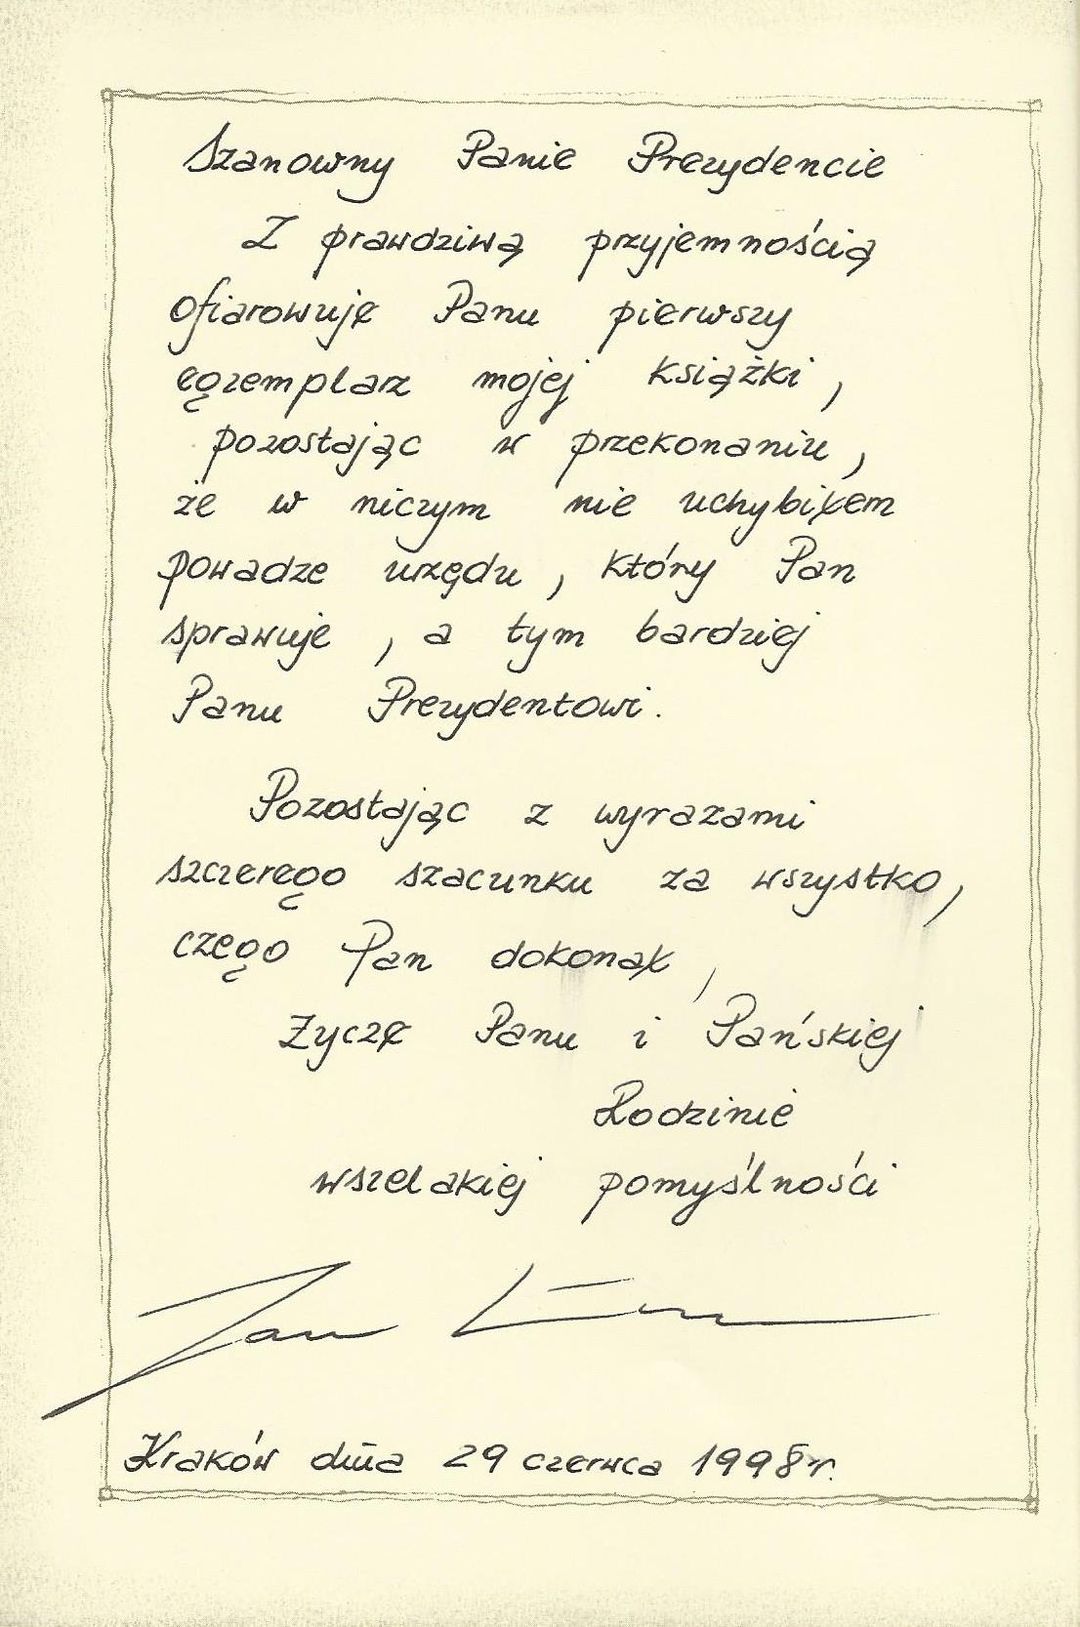 Szanowny Panie Prezydencie
Z prawdziwą przyjemnością
ofiarowuję Panu pierwszy
egzemplarz mojej książki,
pozostając w przekonaniu,
że w niczym nie uchybiłem
powadze urzędu, który Pan
sprawuje, a tym bardziej
Panu Prezydentowi.
Pozostając z wyrazami
szczerego szacunku za wszystko,
czego Pan dokonał,
życzę Panu i Pańskiej
Rodzinie
wszelakiej pomyślności
Jan
Kraków dnia 29 czerwca 1998r.